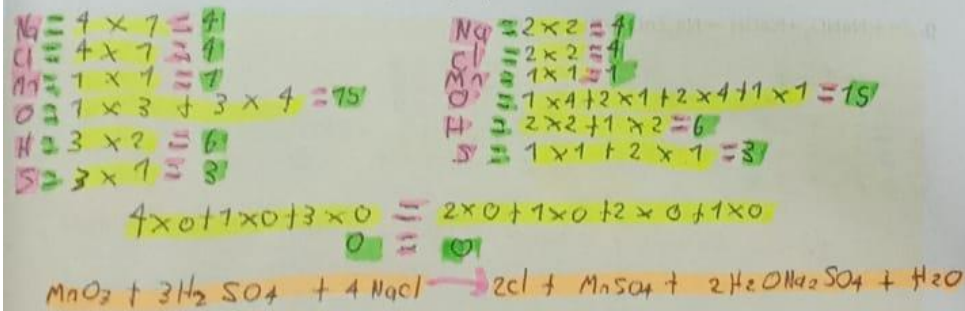 Na = 4 x 1 = 4
Cl = 4 x 1 = 4
Mn = 1 x 1 = 1
O = 1 x 3 + 3 x 4 = 15
H = 3 x 2 = 6
S = 3 x 1 = 3
Na = 2 x 2 = 4
Cl = 2 x 2 = 4
Mn = 1 x 1 = 1
O = 1 x 4 + 2 x 1 + 2 x 4 + 1 x 1 = 15
H = 2 x 2 + 1 x 2 = 6
S = 1 x 1 + 2 x 1 = 3
4 x 0 + 1 x 0 + 3 x 0 = 2 x 0 + 1 x 0 + 2 x 0 + 1 x 0
0 = 0
MnO3 + 3H2SO4 + 4NaCl → 2Cl + MnSO4 + 2H2ONa2SO4 + H2O